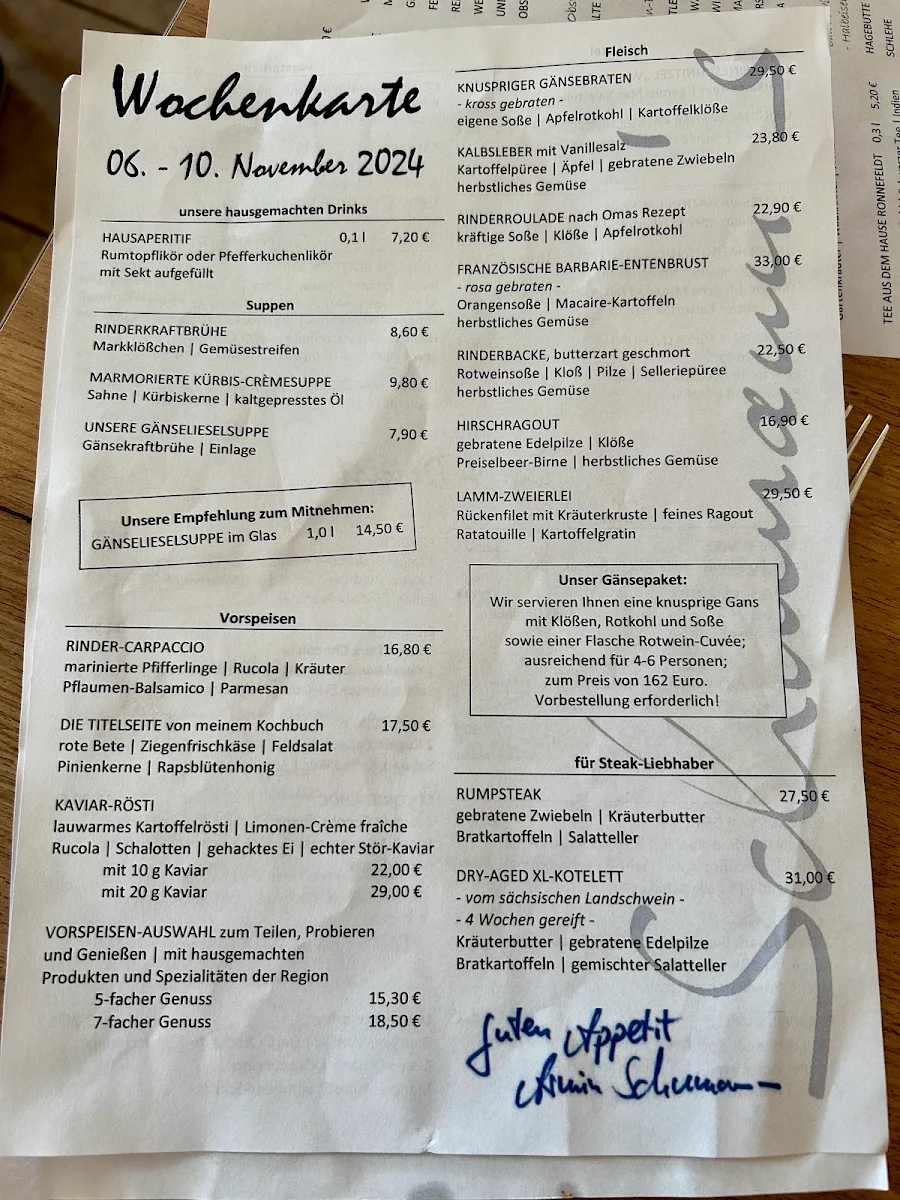 Wochenkarte
06. - 10. November 2024
unsere hausgemachten Drinks
HAUSAPERITIF 0,1 l 7,20 €
Rumtopflikör oder Pfefferkuchenlikör
mit Sekt aufgefüllt
Suppen
RINDERKRAFTBRÜHE 8,60 €
Markklößchen | Gemüsestreifen
MARMORIERTE KÜRBIS-CRÈMESUPPE 9,80 €
Sahne | Kürbiskerne | kaltgepresstes Öl
UNSERE GÄNSELIESELSUPPE 7,90 €
Gänsekraftbrühe | Einlage
Unsere Empfehlung zum Mitnehmen:
GÄNSELIESELSUPPE im Glas 1,0 l 14,50 €
Vorspeisen
RINDER-CARPACCIO 16,80 €
marinierte Pfifferlinge | Rucola | Kräuter
Pflaumen-Balsamico | Parmesan
DIE TITELSEITE von meinem Kochbuch 17,50 €
rote Bete | Ziegenfrischkäse | Feldsalat
Pinienkerne | Rapsblütenhonig
KAVIAR-RÖSTI
lauwarmes Kartoffelrösti | Limonen-Crème fraîche
Rucola | Schalotten | gehacktes Ei | echter Stör-Kaviar
mit 10 g Kaviar 22,00 €
mit 20 g Kaviar 29,00 €
VORSPEISEN-AUSWAHL zum Teilen, Probieren
und Genießen | mit hausgemachten
Produkten und Spezialitäten der Region
5-facher Genuss 15,30 €
7-facher Genuss 18,50 €
Fleisch
KNUSPRIGER GÄNSEBRATEN 29,50 €
- kross gebraten -
eigene Soße | Apfelrotkohl | Kartoffelklöße
KALBSLEBER mit Vanillesalz 23,80 €
Kartoffelpüree | Äpfel | gebratene Zwiebeln
herbstliches Gemüse
RINDERROULADE nach Omas Rezept 22,90 €
kräftige Soße | Klöße | Apfelrotkohl
FRANZÖSISCHE BARBARIE-ENTENBRUST 33,00 €
- rosa gebraten -
Orangensoße | Macaire-Kartoffeln
herbstliches Gemüse
RINDERBACKE, butterzart geschmort 22,50 €
Rotweinsoße | Kloß | Pilze | Selleriepüree
herbstliches Gemüse
HIRSCHRAGOUT 16,90 €
gebratene Edelpilze | Klöße
Preiselbeer-Birne | herbstliches Gemüse
LAMM-ZWEIERLEI 29,50 €
Rückenfilet mit Kräuterkruste | feines Ragout
Ratatouille | Kartoffelgratin
Unser Gänsepaket:
Wir servieren Ihnen eine knusprige Gans
mit Klößen, Rotkohl und Soße
sowie einer Flasche Rotwein-Cuvée;
ausreichend für 4-6 Personen;
zum Preis von 162 Euro.
Vorbestellung erforderlich!
für Steak-Liebhaber
RUMPSTEAK 27,50 €
gebratene Zwiebeln | Kräuterbutter
Bratkartoffeln | Salatteller
DRY-AGED XL-KOTELETT 31,00 €
- vom sächsischen Landschwein -
- 4 Wochen gereift -
Kräuterbutter | gebratene Edelpilze
Bratkartoffeln | gemischter Salatteller
Guten Appetit
Armin Schumann
Schumann's
TEE AUS DEM HAUSE RONNEFELDT 0,3 l 5,20 €
HAGEBUTTE
SCHLEHE